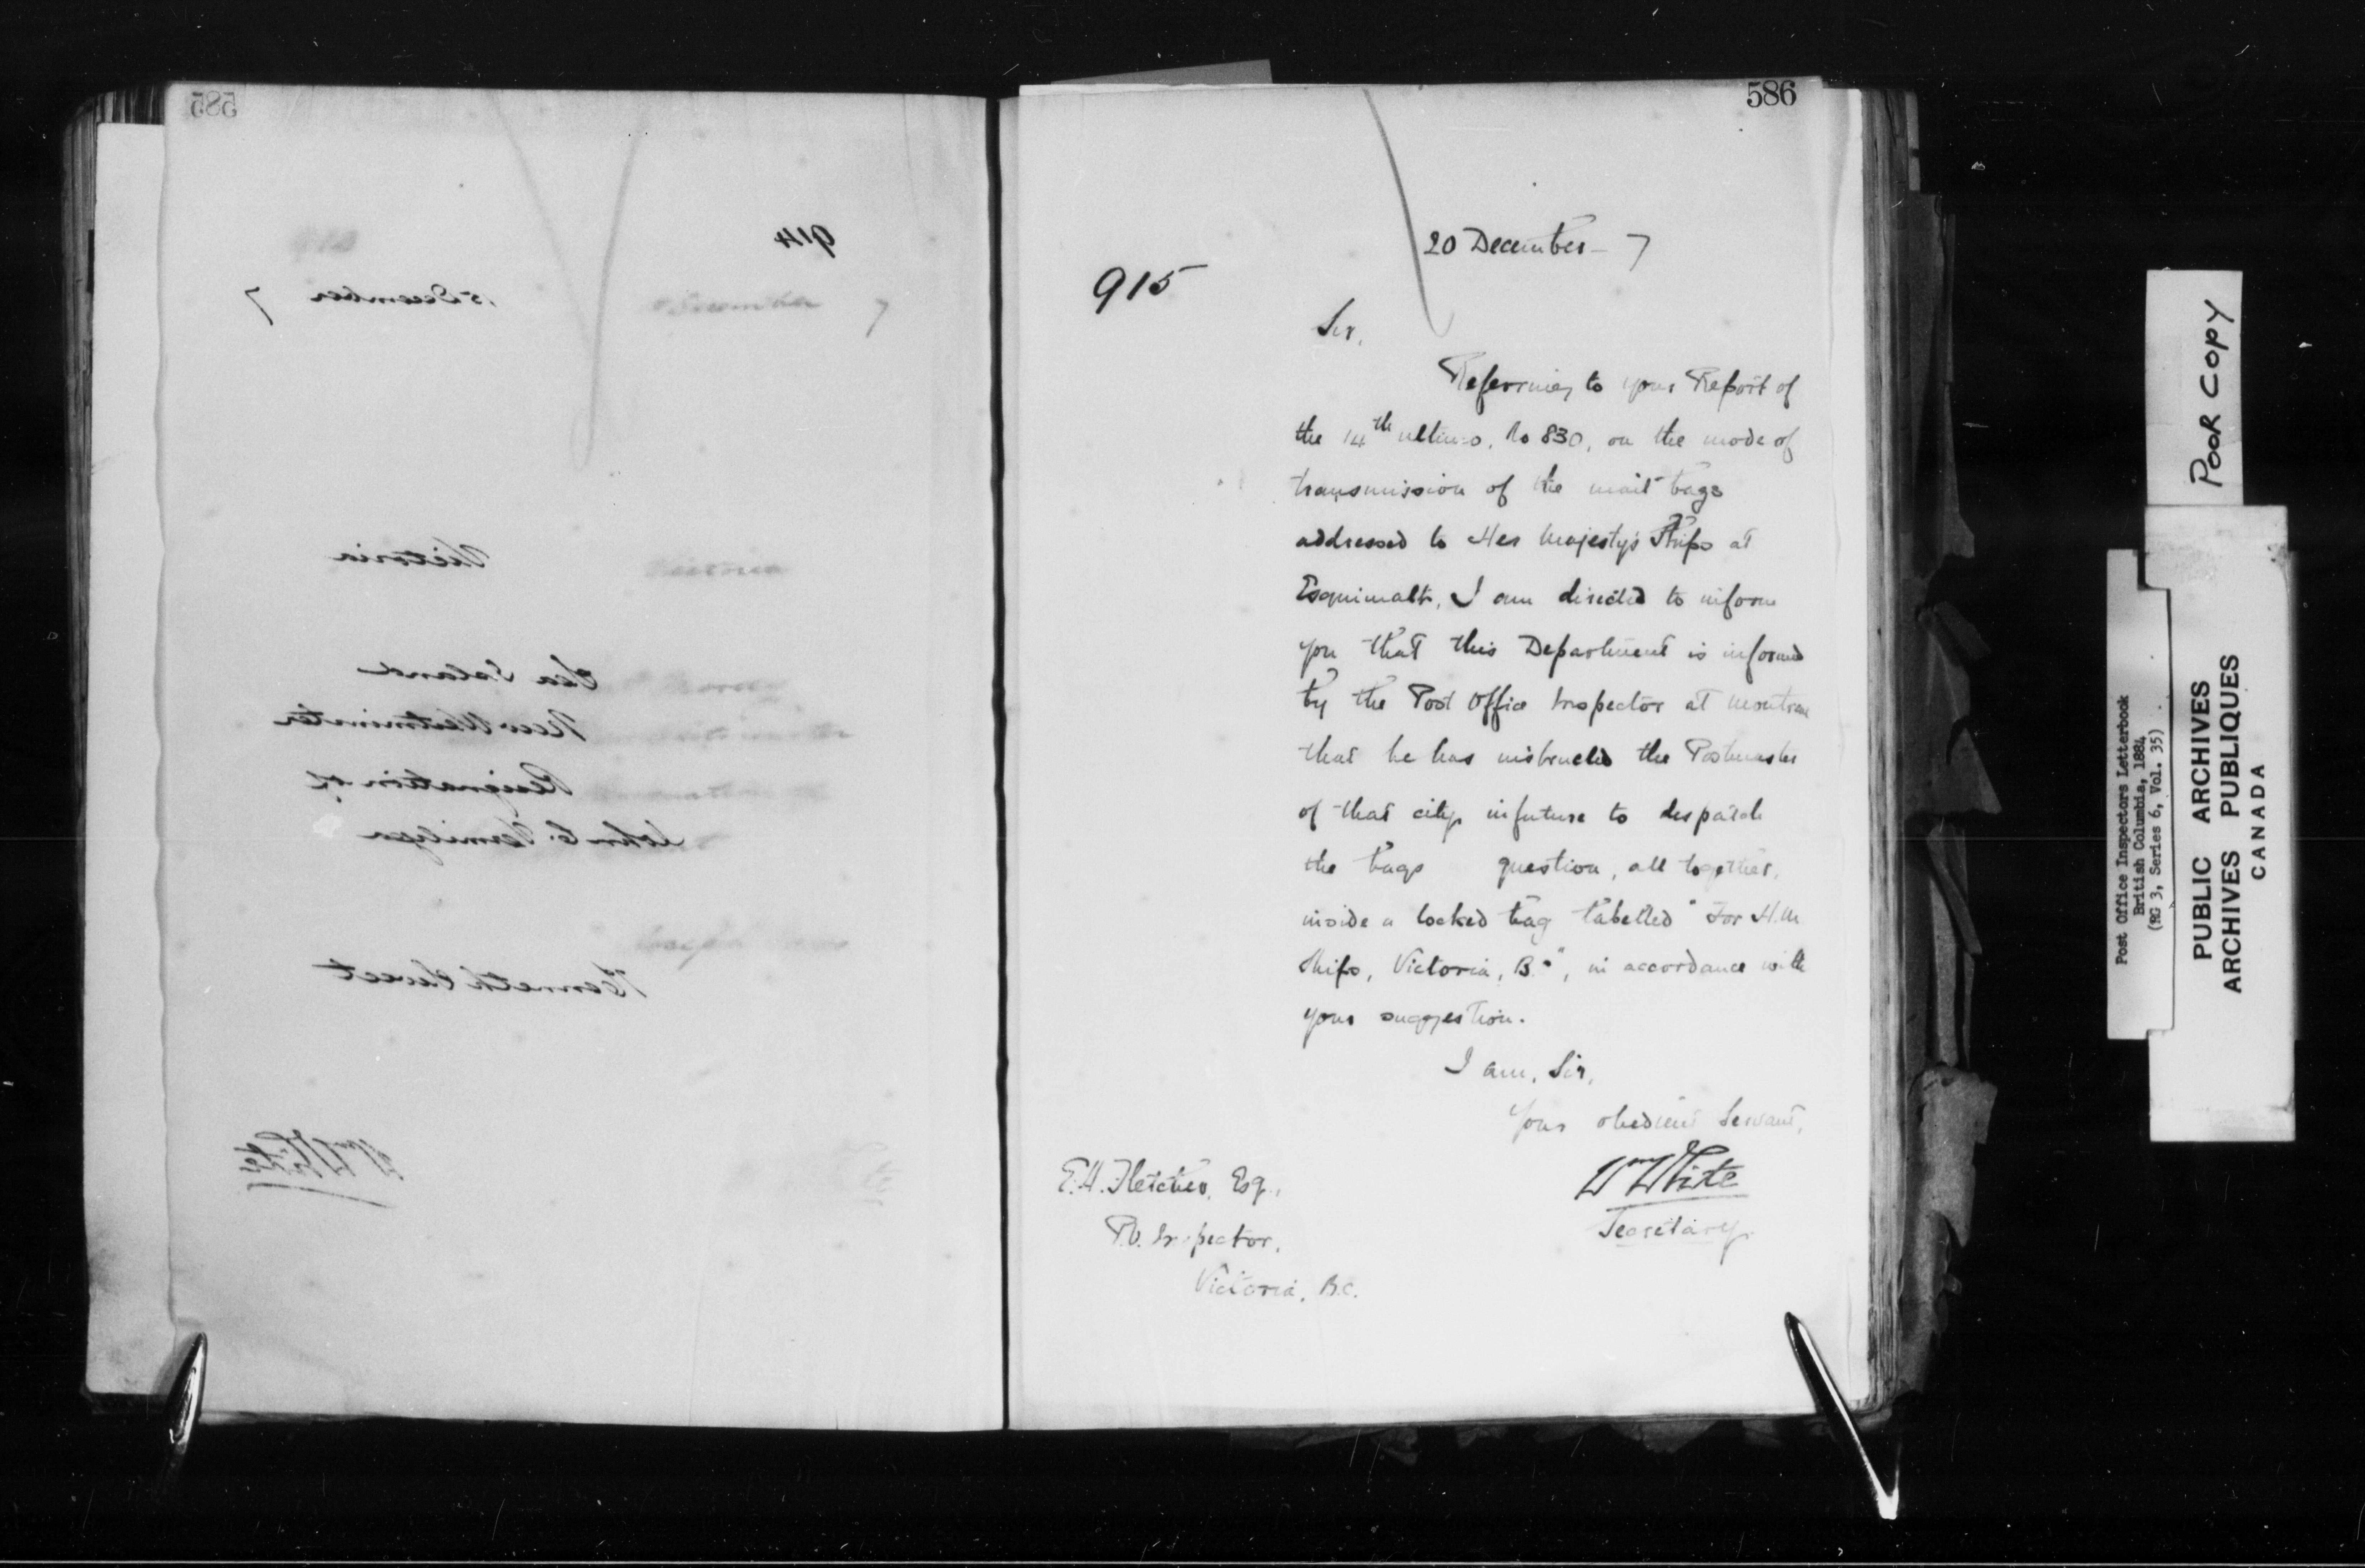 585
914
15 December 7
Victoria
Sea Island
New Westminster
Resignation of
John C.
Kenneth
Wm White
586
20 December 7
915
Sir,
Referring to your Report of
the 14th ultimo, No 830, on the mode of
transmission of the mail bags
addressed to Her Majesty's Ships at
Esquimalt, I am directed to inform
you that this Department is informed
by the Post Office Inspector at Montreal
that he has instructed the Postmaster
of that city in future to despatch
the bags question, all together,
inside a locked bag labelled "For H.M.
Ships, Victoria, B. ", in accordance with
your suggestion.
I am, Sir,
Your obedient Servant,
Wm White
Secretary.
E.H. Fletcher, Esq.,
P.O. Inspector,
Victoria, B.C.
POOR COPY
Post Office Inspectors Letterbook
British Columbia, 1884
(RG 3, Series 6, Vol. 35)
PUBLIC ARCHIVES
ARCHIVES PUBLIQUES
CANADA